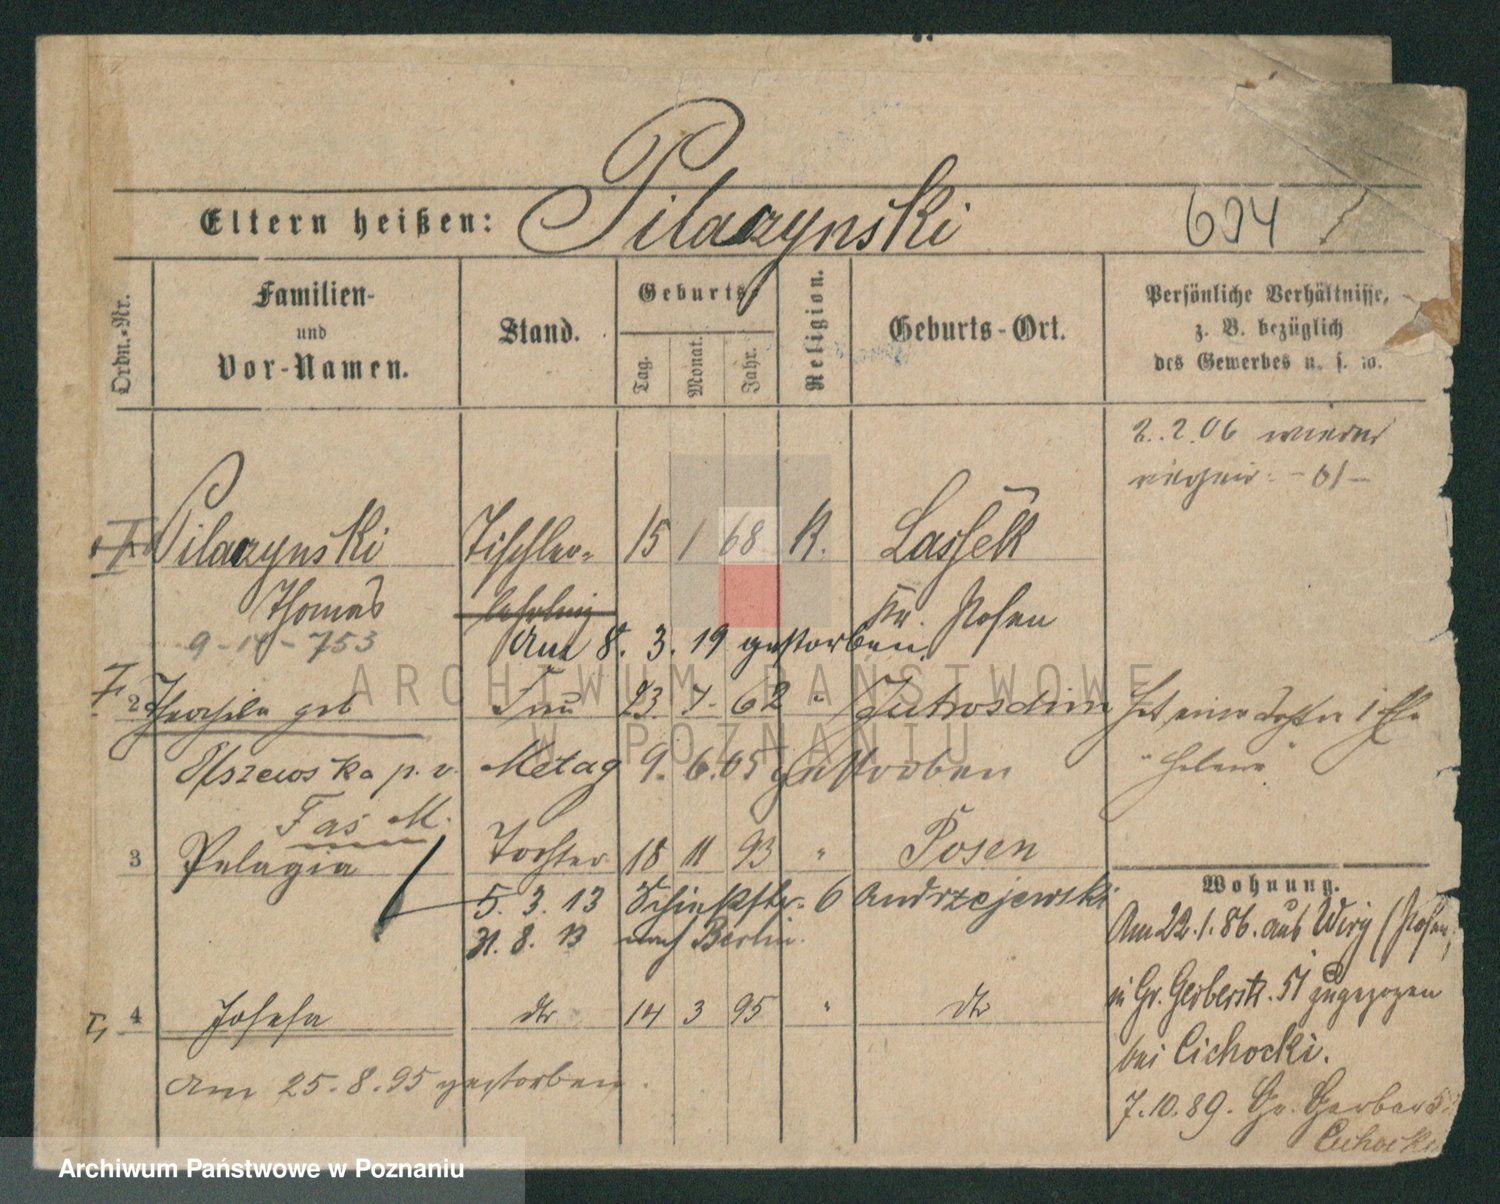 Eltern heißen: Pilaczynski 694
Ordn.-Nr.
Familien-
und
Vor-Namen.
Stand.
Geburts-
Tag. Monat. Jahr.
Religion.
Geburts-Ort.
Persönliche Verhältnisse,
z. B. bezüglich
des Gewerbes u. s. w.
2.2.06 wieder
Pilaczynski Tischler- 15 1 68 K. Lassek
Thomas lehrling Kr. Posen
9-14-753
Am 8. 3. 19 gestorben.
2 geb Frau 23. 7. 62 " Jutroschin Hat eine Tochter
p. v. Metag 9. 6. 05 gestorben "Helene"
3 Pelagia Tochter 18 11 93 " Posen
5. 3. 13 6 Andrzejewski
31. 8. 13 nach Berlin.
4 Josefa dto 14 3 95 " dto
Am 25.8.95 gestorben.
Wohnung.
Am 22.1.86. aus Wiry (Posen,
in Gr. Gerberstr. 51 zugezogen
bei Cichocki.
7.10.89. Gr. Gerber 5
Cichocki
ARCHIWUM PAŃSTWOWE
W POZNANIU
Archiwum Państwowe w Poznaniu